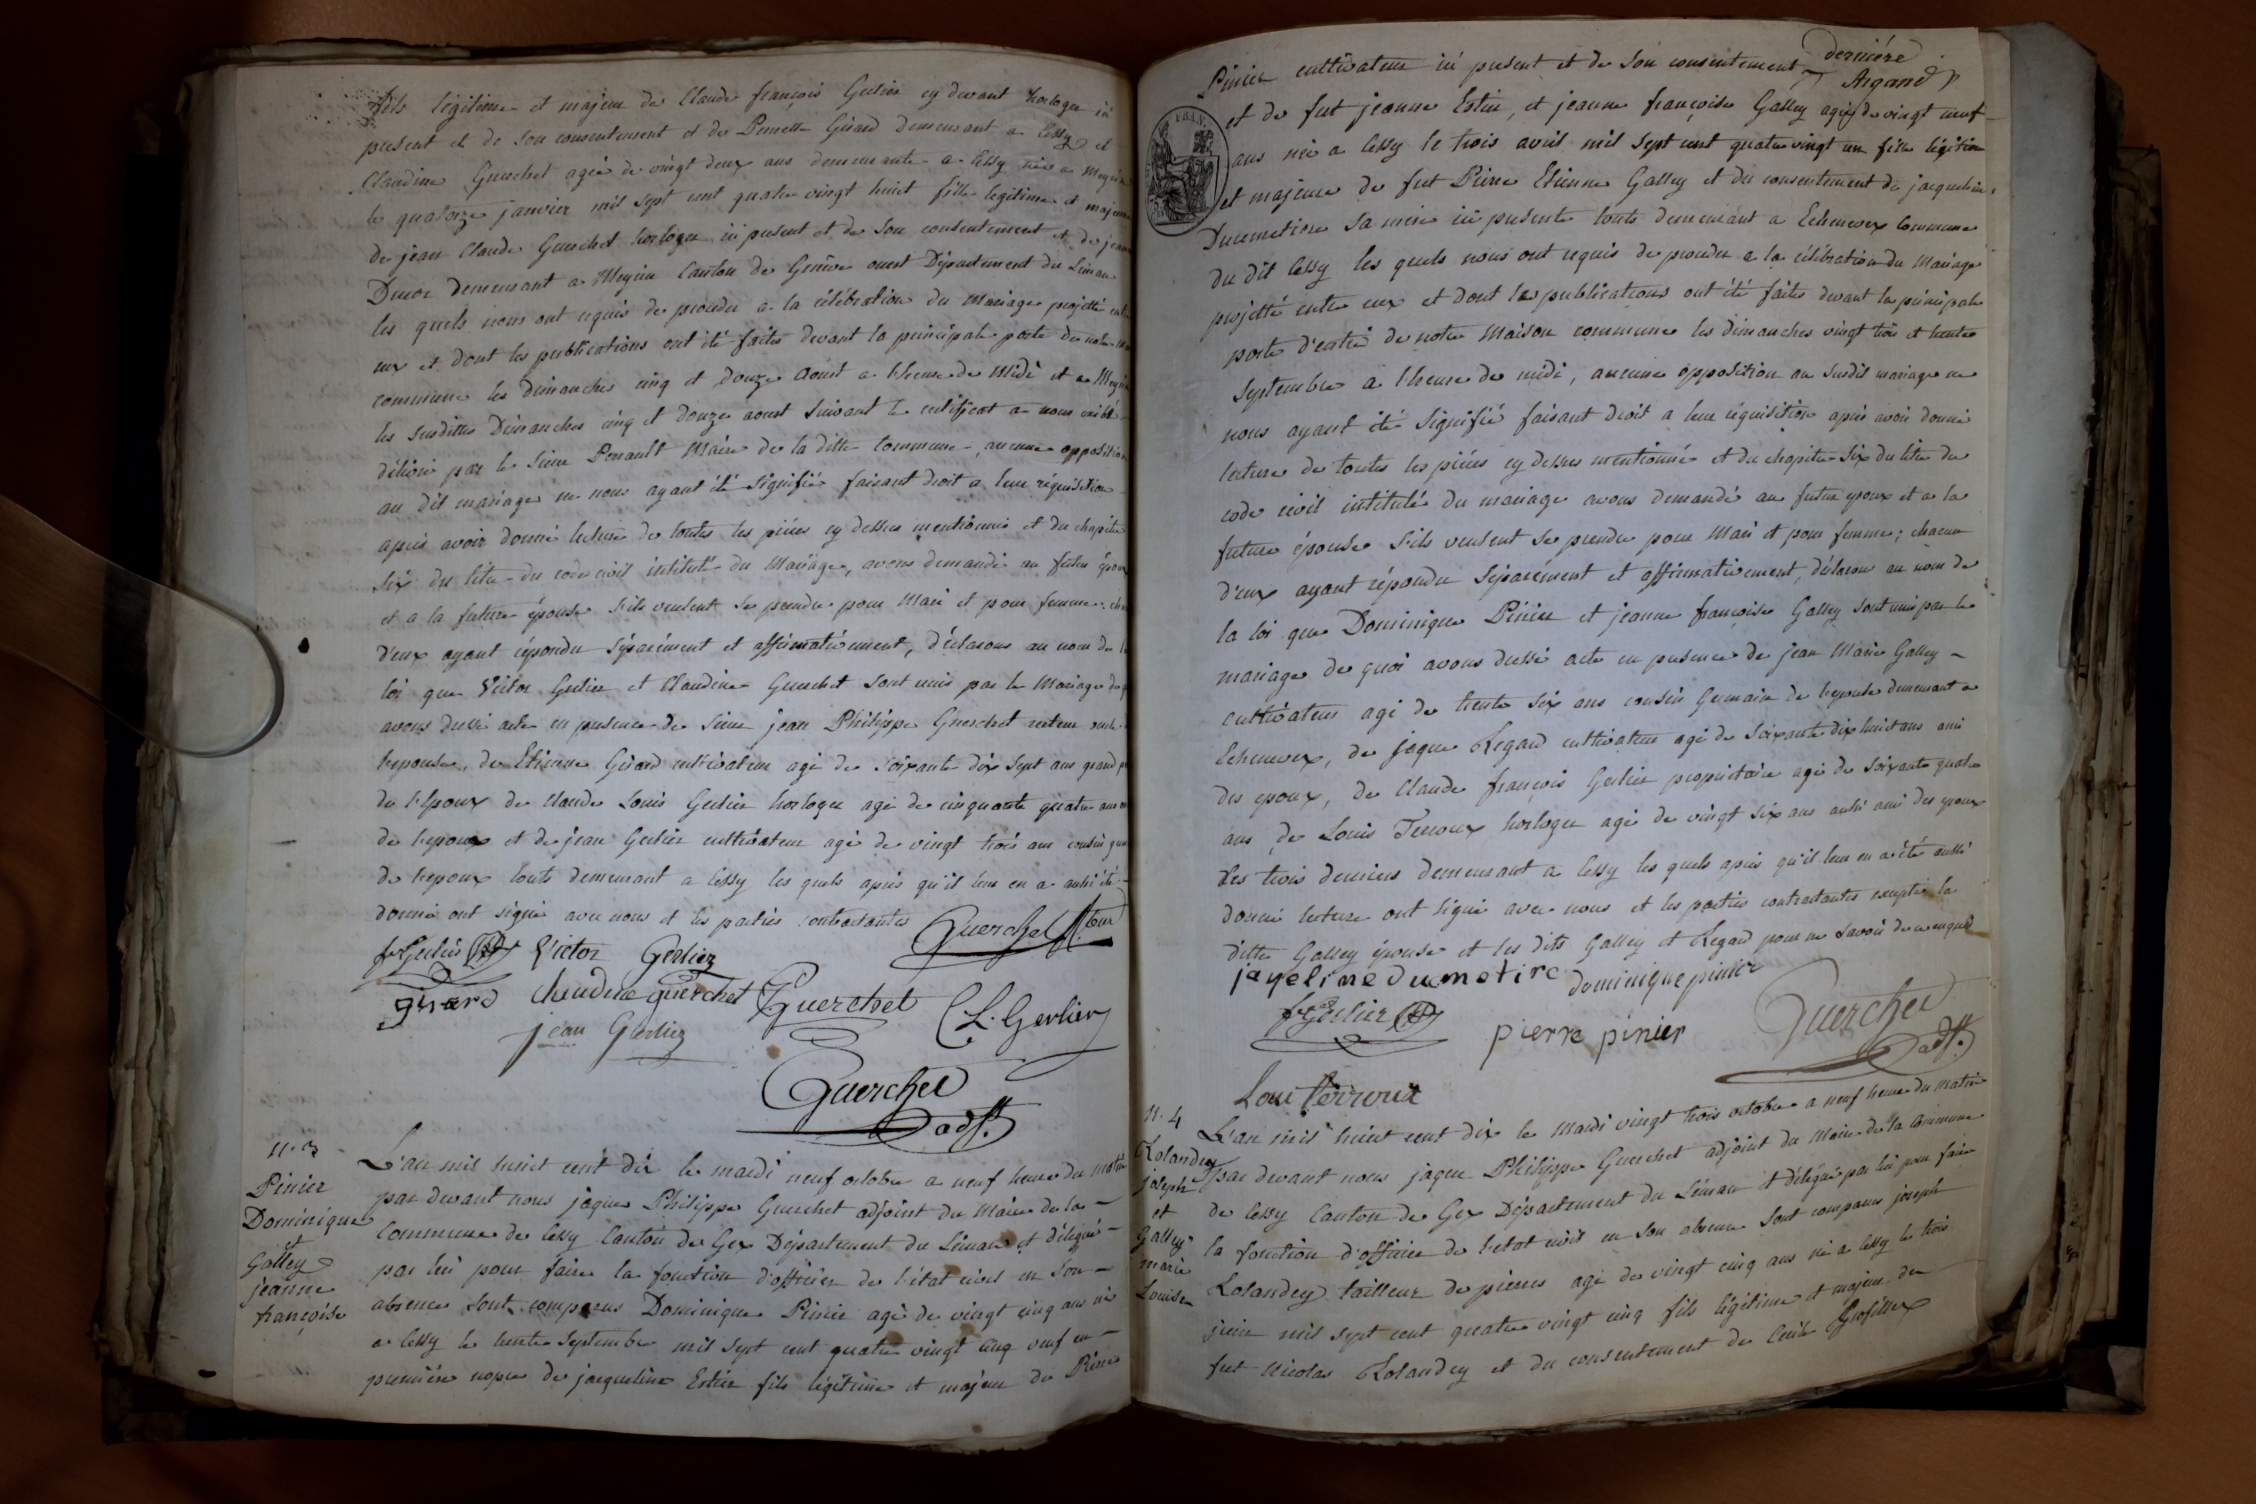 fils légitime et majeur de Claude françois Gerlier cy devant horloger ici
present et de son consentement et de Pernette Girard demeurant a Cessy et
Claudine Guerchet agée de vingt deux ans demeurante a Cessy née a Meyrin
le quatorze janvier mil sept cent quatre vingt huit fille legitime et majeure
de jean Claude Guerchet horloger ici present et de son consentement et de jeanne
demeurant a Meyrin Canton de Genève ouest Département du Léman
les quels nous ont requis de proceder a la célébration du Mariage projetté entre
eux et dont les publications ont été faites devant la principale porte de notre
commune les dimanches cinq et douze Aoust a l'heure de Midi et a Meyrin
les susdittes Dimanches cinq et douze aoust suivant le certificat a nous
délivré par le sieur Perrault Maire de la ditte Commune, aucune opposition
au dit mariage ne nous ayant été signifiée faisant droit a leur requisition
apres avoir donné lecture de toutes les piéces cy dessus mentionnés et du chapitre
six du titre du code civil intitulé du Mariage, avons demandé au futur époux
et a la future épouse s'ils veulent se prendre pour Mari et pour femme;
d'eux ayant répondu séparément et affirmativement, déclarons au nom de la
loi que Victor Gerlier et Claudine Guerchet sont unis par le Mariage de
avons dressé acte en presence de sieur jean Philippe Guerchet
l'epouse, de Etienne Girard cultivateur agé de soixante dix sept ans grand
de l'Epoux de Claude Louis Gerlier horloger agé de cinquante quatre ans
de l'epoux et de jean Gerlier cultivateur agé de vingt trois ans cousin
de l'epoux touts demeurant a Cessy les quels après qu'il leur en a aussi été
donné ont signé avec nous et les parties contractantes Guerchet
f Gerlier Victor Gerlier
girard Claudine guerchet Guerchet C. L. Gerlier
jean Gerlier
Guerchet
adjt.
N. 3
Pinier
Dominique
et
Galley
jeanne
françoise
L'an mil huit cent dix le mardi neuf octobre a neuf heure du matin
par devant nous jaque Philippe Guerchet adjoint du Maire de la
Commune de Cessy Canton de Gex Département du Léman et délégué
par lui pour faire la fonction d'officier de l'état civil en son
absence sont comparus Dominique Pinier agé de vingt cinq ans né
a Cessy le trente septembre mil sept cent quatre vingt cinq veuf en
premiére nopce de jacqueline Estier fils légitime et majeur de Pierre
derniére
Pinier cultivateur ici present et de son consentement Argand
et de fut jeanne Estier, et jeanne françoise Galley agée de vingt neuf
ans née a Cessy le trois avril mil sept cent quatre vingt un fille légitime
et majeure de fut Pierre Etienne Galley et du consentement de jacqueline
Dumetire sa mère ici presente touts demeurant a Echenevex Commune
du dit Cessy les quels nous ont requis de proceder a la célébration du Mariage
projetté entre eux et dont les publications ont été faites devant la principale
porte d'entré de notre Maison commune les dimanches vingt trois et trente
septembre a l'heure de midi, aucune opposition au susdit mariage ne
nous ayant été signifié faisant droit a leur réquisition après avoir donné
lecture de toutes les piéces cy dessus mentionné et du chapitre six du titre du
code civil intitulé du mariage avons demandé au futur epoux et a la
future épouse s'ils veulent se prendre pour Mari et pour femme; chacun
d'eux ayant répondu séparément et affirmativement, déclarons au nom de
la loi que Dominique Pinier et jeanne françoise Galley sont unis par le
mariage de quoi avons dressé acte en presence de jean Marie Galley
cultivateur agé de trente six ans cousin Germain de l'epouse demeurant a
Echenevex, de jaque Regard cultivateur agé de soixante dix huit ans ami
des epoux, de Claude françois Gerlier propriétaire agé de soixante quatre
ans, de Louis Terroux horloger agé de vingt six ans aussi ami des epoux
les trois derniers demeurant a Cessy les quels après qu'il leur en a été aussi
donné lecture ont signé avec nous et les parties contractantes excepté la
ditte Galley épouse et les dits Galley et Regard pour ne savoir de ce enquis
jaqeline dumetire dominique pinier
f Gerlier pierre pinier Guerchet
adjt.
Loui Terroux
N. 4
Rolandey
joseph
et
Galley
marie
Louise
L'an mil huit cent dix le Mardi vingt trois octobre a neuf heure du matin
par devant nous jaque Philippe Guerchet adjoint du Maire de la Commune
de Cessy Canton de Gex Département du Léman et délégué par lui pour faire
la fonction d'officier de l'etat civil en son absence sont comparus joseph
Rolandey tailleur de pierres agé de vingt cinq ans né a Cessy le trois
juin mil sept cent quatre vingt cinq fils légitime et majeur de
fut Nicolas Rolandey et du consentement de Cécile Grosfillex